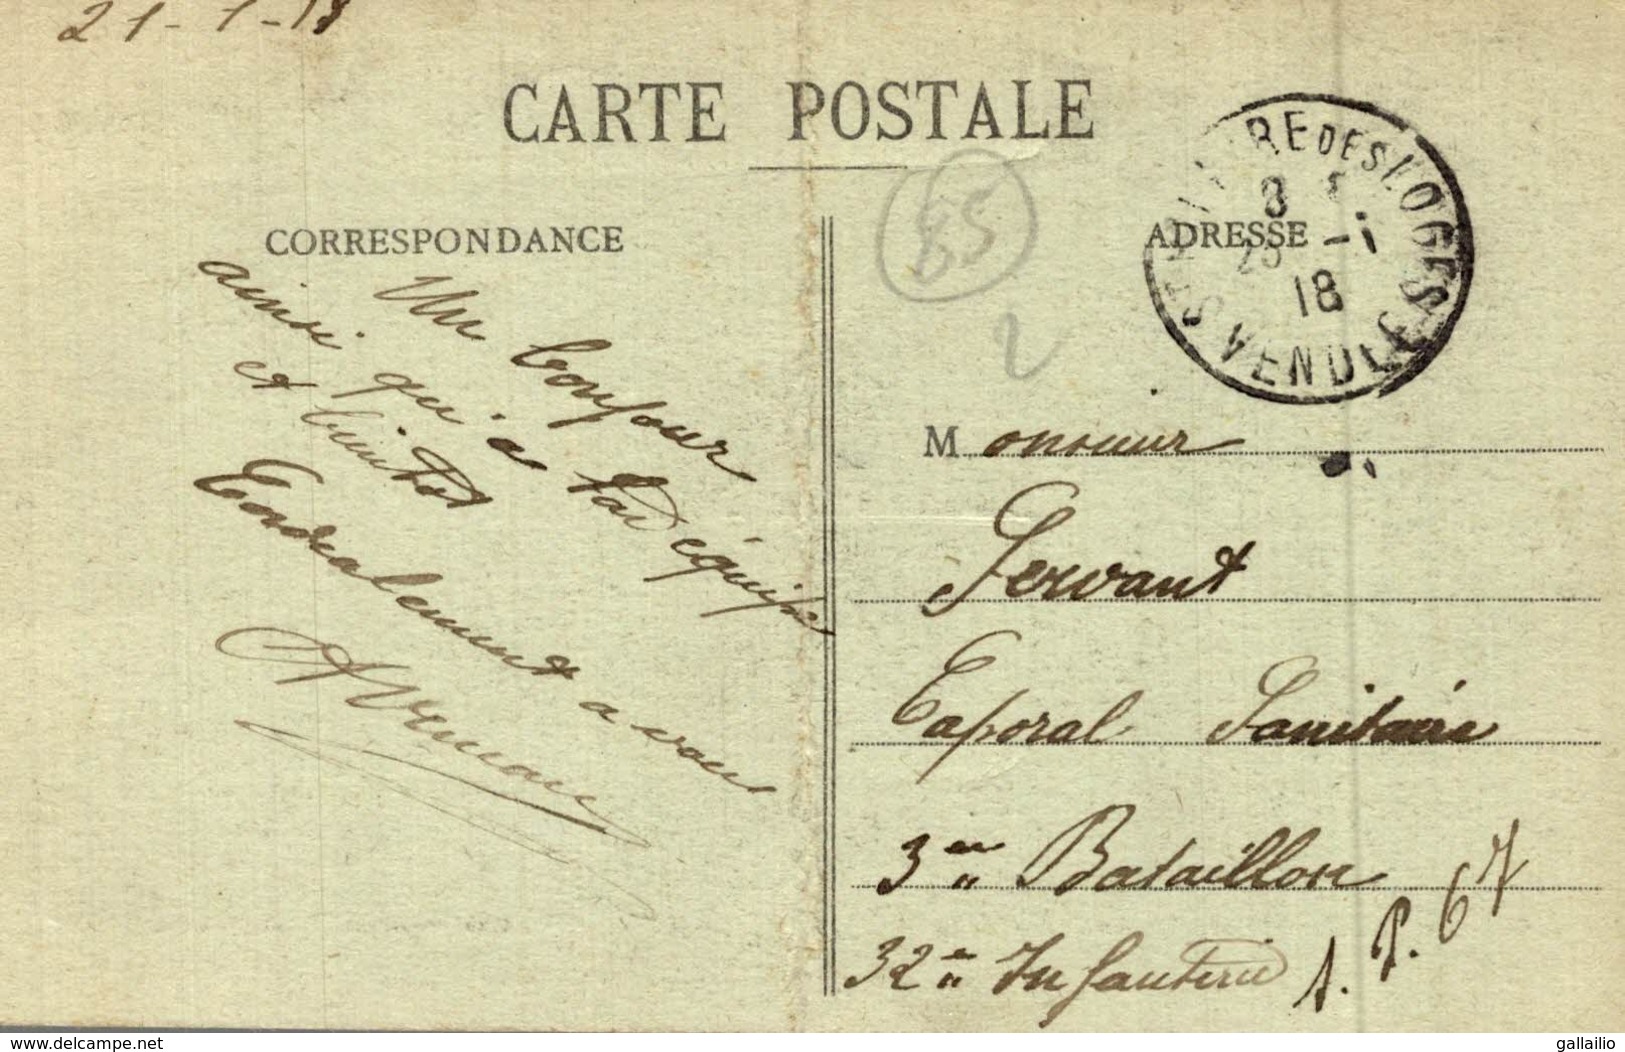 21-1-18
CARTE POSTALE
CORRESPONDANCE
ADRESSE
65
2
Un bonjour
ainsi qu'a tad équipe
et
Cordialement a vous
ST HILAIRE DES LOGES
8
25 -1
18
VENDEE
Monsieur
Servant
Caporal Sanitaire
3me Bataillon
32me Infanterie S. P. 67
www.delcampe.net
gallailio